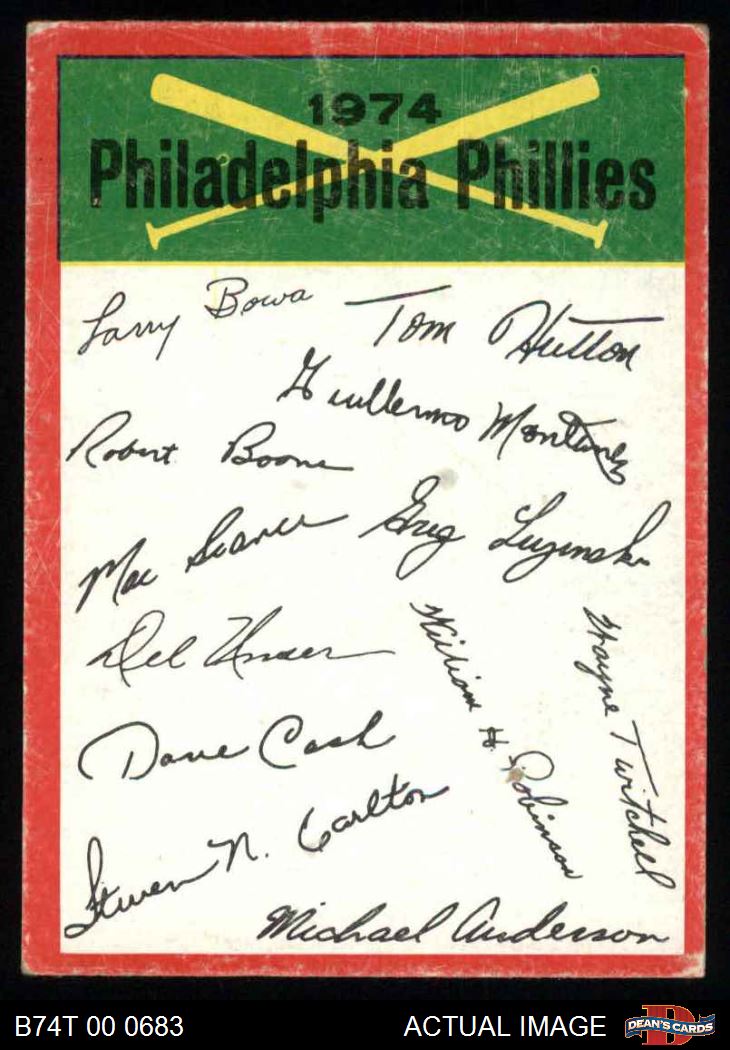 1974
Philadelphia Phillies
Larry Bowa
Tom Hutton
Guillermo Montanez
Robert Boone
Mac Scarce
Greg Luzinski
Del Unser
William H. Robinson
Wayne Twitchell
Dave Cash
Steven N. Carlton
Michael Anderson
B74T 00 0683
ACTUAL IMAGE
D
DEAN'S CARDS